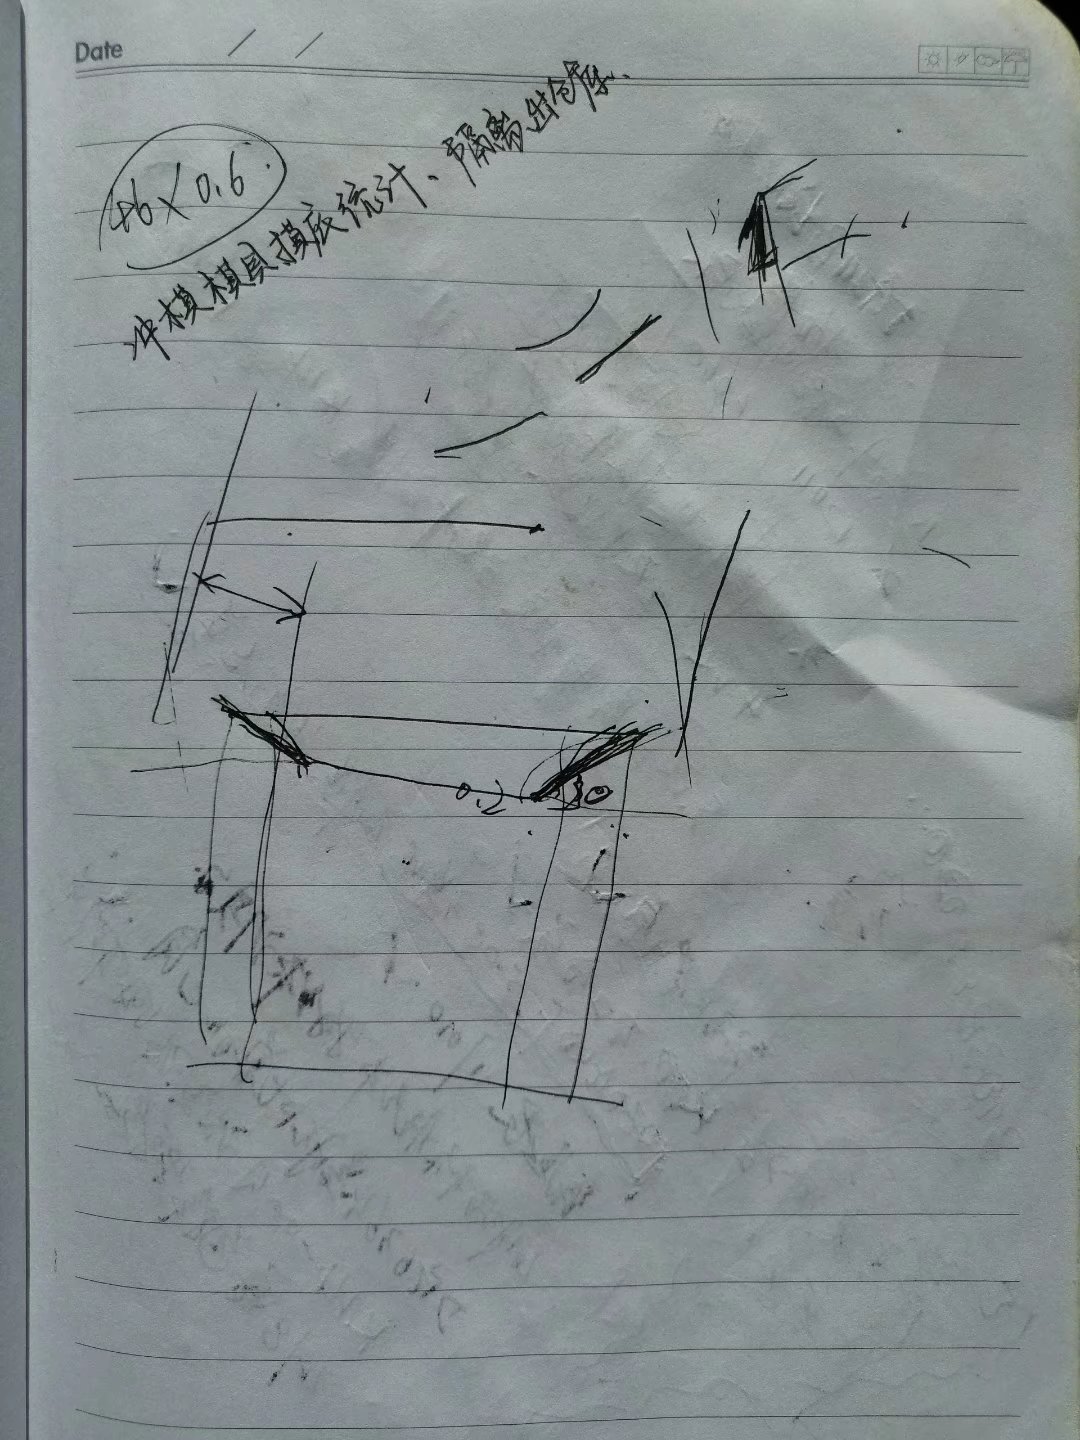 Date / /
46×0.6
冲模模具摸底统计、隔离出仓库.
0.2
30